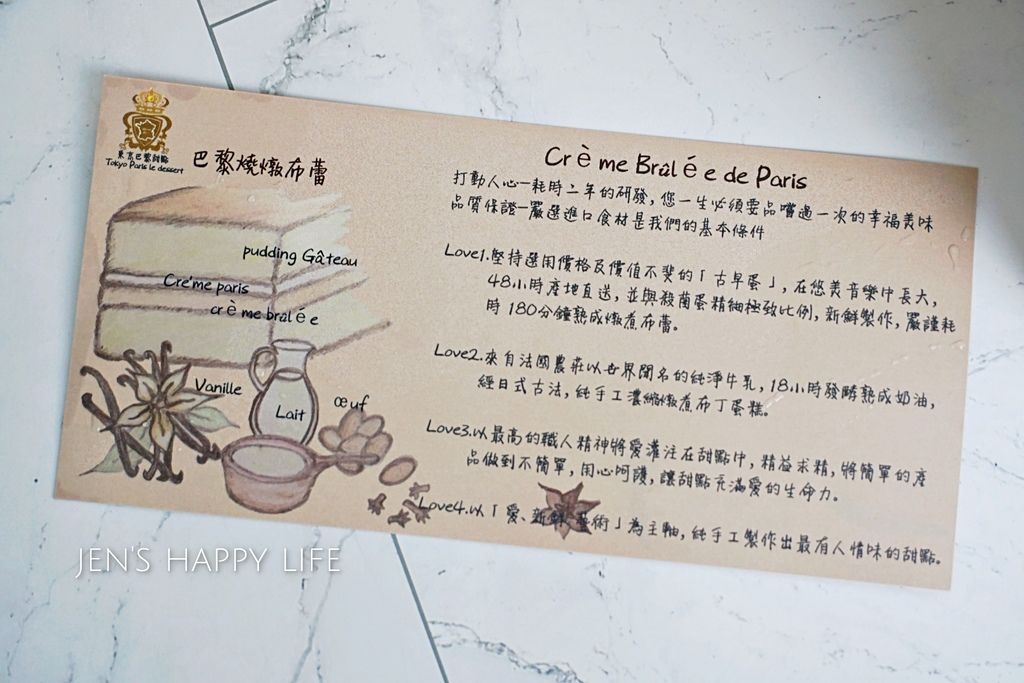 東京巴黎甜點
Tokyo Paris le dessert
巴黎燒燉布蕾
pudding Gâteau
Cre'me paris
crème brûlée
Vanille
Lait
œuf
Crème Brûlée de Paris
打動人心—耗時二年的研發,您一生必須要品嚐過一次的幸福美味
品質保證—嚴選進口食材是我們的基本條件
Love1.堅持選用價格及價值不斐的「古早蛋」,在悠美音樂中長大,
48小時產地直送,並與殺菌蛋精細極致比例,新鮮製作,嚴謹耗
時180分鐘熟成燉煮布蕾。
Love2.來自法國農莊以世界聞名的純淨牛乳,18小時發酵熟成奶油,
經日式古法,純手工濃縮燉煮布丁蛋糕。
Love3.以最高的職人精神將愛灌注在甜點中,精益求精,將簡單的產
品做到不簡單,用心呵護,讓甜點充滿愛的生命力。
Love4.以「愛、新鮮、藝術」為主軸,純手工製作出最有人情味的甜點。
JEN'S HAPPY LIFE